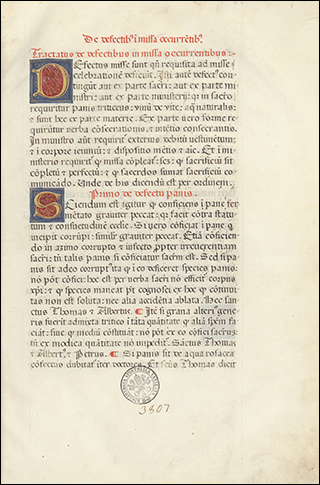 De defectib' i missa occurrētib'.
Tractatus de defectibus in missa occurrentibus:
Defectus misse sunt qñ requisita ad misse
celebrationē deficiūt. Isti autē defectꝰ con
tingūt aut ex parte sacri: aut ex parte mi
nistri: aut ex parte ministerij: qꝛ in sacro
requiritur panis triticeus: vinū de vite: aq̃ naturalis:
⁊ sunt hec ex parte materie. Ex parte vero forme re
quirūtur verba cōsecrationis, ⁊ intētio consecrantis.
In ministro aūt requirūt̃ exterius debitū vestimētum:
⁊ i corpore ieiuniū: ⁊ dispositio mētis ⁊ aīe. Et i mi
nisterio requirit̃
sacrificiū sit
completū ⁊ perfectū: ⁊ sacerdos sumat sacrificiū co
municādo. Unde de his dicendū est per ordinem.
Primo de defectu panis
Sciendum est igitur conficiens i pane fer
mētato grauiter peccat: facit cōtra statu
tum ⁊ consuetudinē ecclie. Si vero cōficiat i pane
incipit corrūpi: similr̃ grauiter peccat. Etiā cōficien
do in azimo corrupto ⁊ infecto ꝓpter irreuerentiam
peccat: tñ talis panis si cōficiatur sacrm̃ est. Sed si pa
nis sit adeo corruptꝰ ita i eo deficeret species panis:
nō pōt cōfici: hec est per verba sacri nō efficit̃ corpus
xp̃i: ⁊ species maneat pōt cognosci ex hoc continui
tas non est soluta: nec alia accidētia ablata. Hec san
ctus Thomas ⁊ Albertus. Itē si grana alteri' gene
ris fuerīt admixta tritico i tāta quātitate aliā spēm fa
ciāt: siue mediā cōstituāt: nō pōt ex eo cōfici sacrm̃:
tñ ex modica quātitate nō impedit̃. Sāctus Thomas
⁊ Albert', ⁊ Petrus. Si panis sit de aqua rosacea
cōfectus dubitat̃ iter doctores. Et scūs Thomas dicit
3807